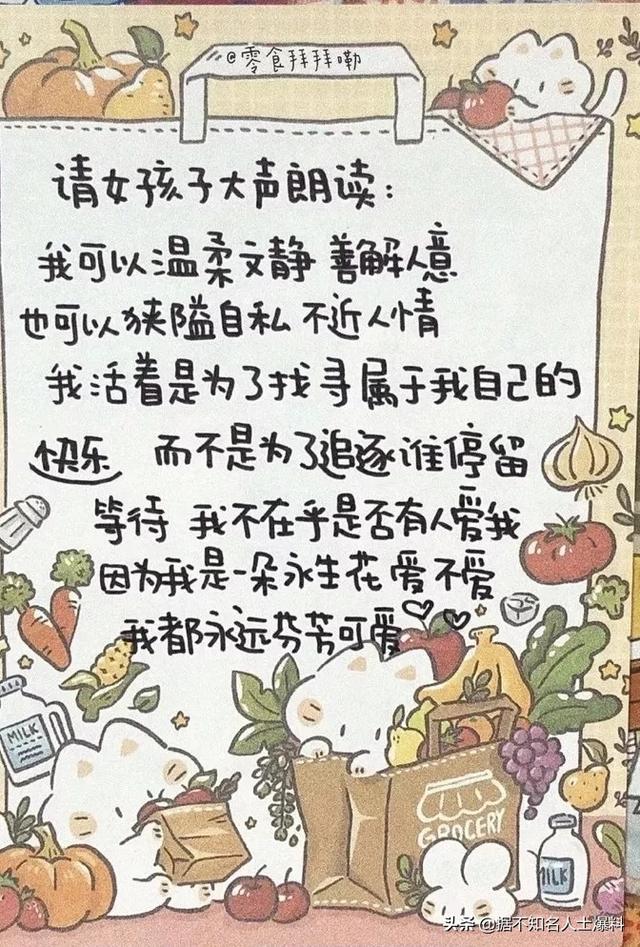 @零食拜拜嘞
请女孩子大声朗读:
我可以温柔文静 善解人意
也可以狭隘自私 不近人情
我活着是为了找寻属于我自己的
快乐 而不是为了追逐谁停留
等待 我不在乎是否有人爱我
因为我是一朵永生花 爱不爱
我都永远芬芳可爱
MILK
GROCERY
MILK
头条 @据不知名人士爆料